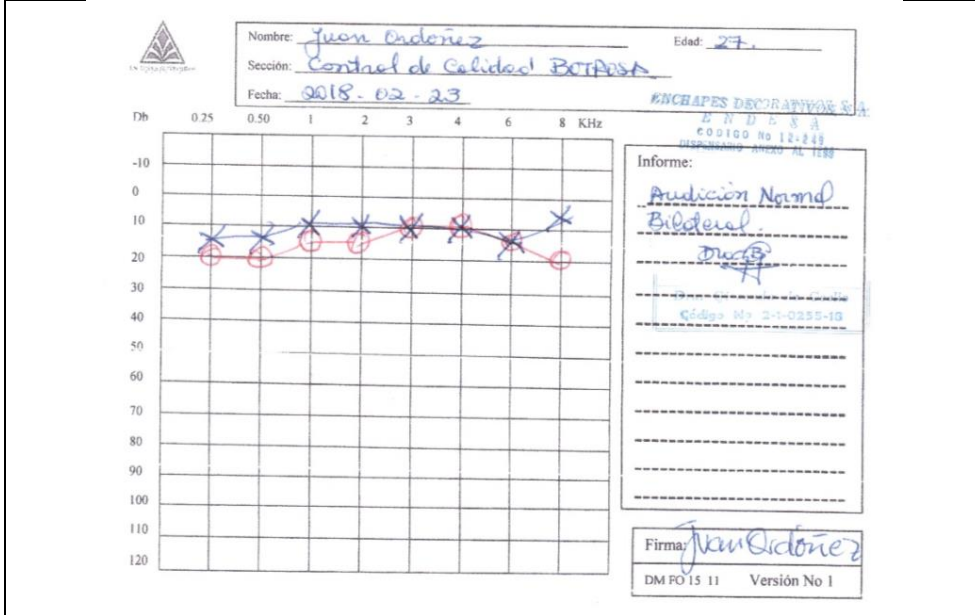 Nombre: Juan Ordoñez
Edad: 27.
Sección: Control de Calidad BOTROSA
Fecha: 2018-02-23
ENCHAPES DECORATIVOS S.A.
E N D E S A
CODIGO No 12-249
DISPENSARIO ANEXO AL IESS
Db 0.25 0.50 1 2 3 4 6 8 KHz
-10
0
10
20
30
40
50
60
70
80
90
100
110
120
Informe:
Audición Normal
Bilateral.
Código No 2-1-0255-13
Firma: Juan Ordóñez
DM FO 15 11 Versión No 1